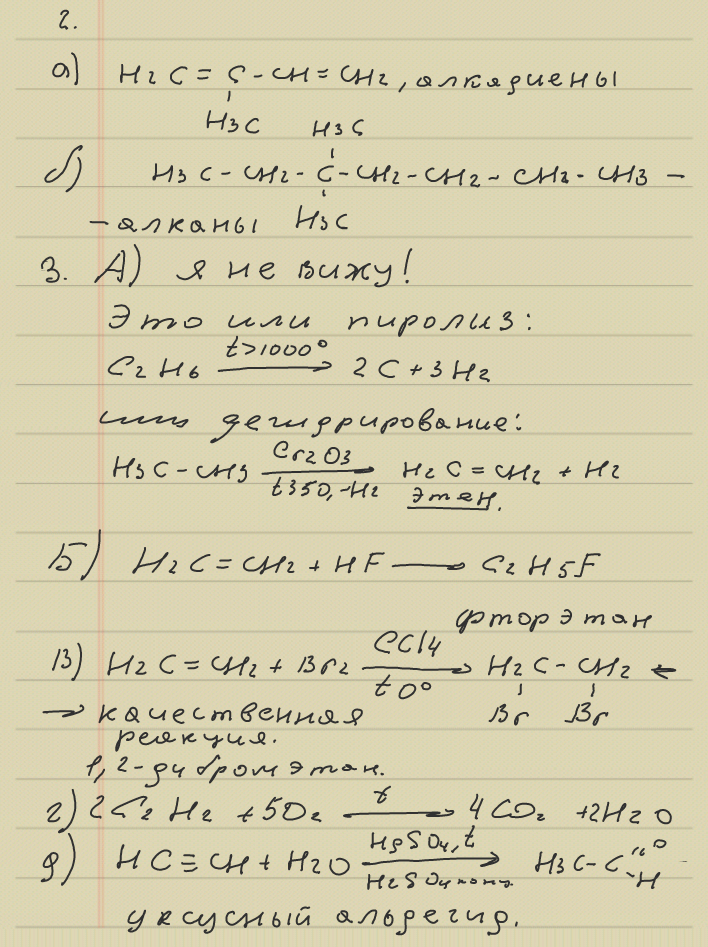 2.
а) H2C = C - CH = CH2, алкадиены
H3C
H3C
б) H3C - CH2 - C - CH2 - CH2 - CH2 - CH3 -
- алканы H3C
3. А) я не вижу!
Это или пиролиз:
C2H6 t>1000° → 2C + 3H2
или дегидрирование:
H3C - CH3 Cr2O3 t350, -H2 → H2C = CH2 + H2
этен.
Б) H2C = CH2 + HF → C2H5F
фторэтан
В) H2C = CH2 + Br2 CCl4 t0° → H2C - CH2 ←
→ качественная Br Br
реакция.
1,2-дибромэтан.
г) 2C2H2 + 5O2 t → 4CO2 + 2H2O
д) HC ≡ CH + H2O HgSO4, t H2SO4 конц. → H3C - C =O -H -
уксусный альдегид.